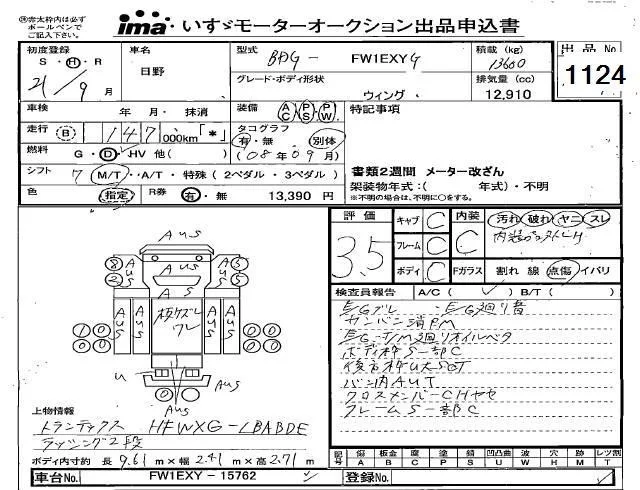 ㊟赤太枠内は必ず
ボールペンで
ご記入下さい。
ima いすゞモーターオークション出品申込書
初度登録 車名 型式 BDG - FW1EXYG 積載 (kg) 13600 出品No
S・H・R 日野 グレード・ボディ形状 排気量 (cc) 1124
21/9 月 ウィング 12,910
車検 年 月・抹消 装備 AC PS PW 特記事項
走行 (B) 147,000km「*」 タコグラフ 有・無 別体
燃料 G・D・HV 他( ) (08年09月)
シフト 7 M/T・A/T・特殊(2ペダル・3ペダル) 書類2週間 メーター改ざん
架装物年式:( 年式)・不明
色 指定 R券 有・無 13,390 円 ※不明の場合は、不明に○をする。
評価 キャブ C 内装 汚れ 破れ ヤニ スレ
3.5 フレーム C C
ボディ C Fガラス 割れ 線 点傷 イバリ
検査員報告 A/C( ) B/T( )
AUS
AUS AUS AUS
AUS AUS
U AUS
E/Gブレ E/G廻り音
カンバン消PM
E/G-T/M廻りオイルベタ
ボディ枠S一部C
バン内AUT
クロスメンバーCHヤセ
フレームS一部C
上物情報
トランテックス HFWXG-LBABDE
ラッシング2段
ボディ内寸約 長 9.61 m×幅 2.41 m×高 2.71 m
記号 傷 板金 腐 塗 錆 凹凸曲 波 穴 跡 補
A B C P S U W H M T
車台No. FW1EXY - 15762 登録No.